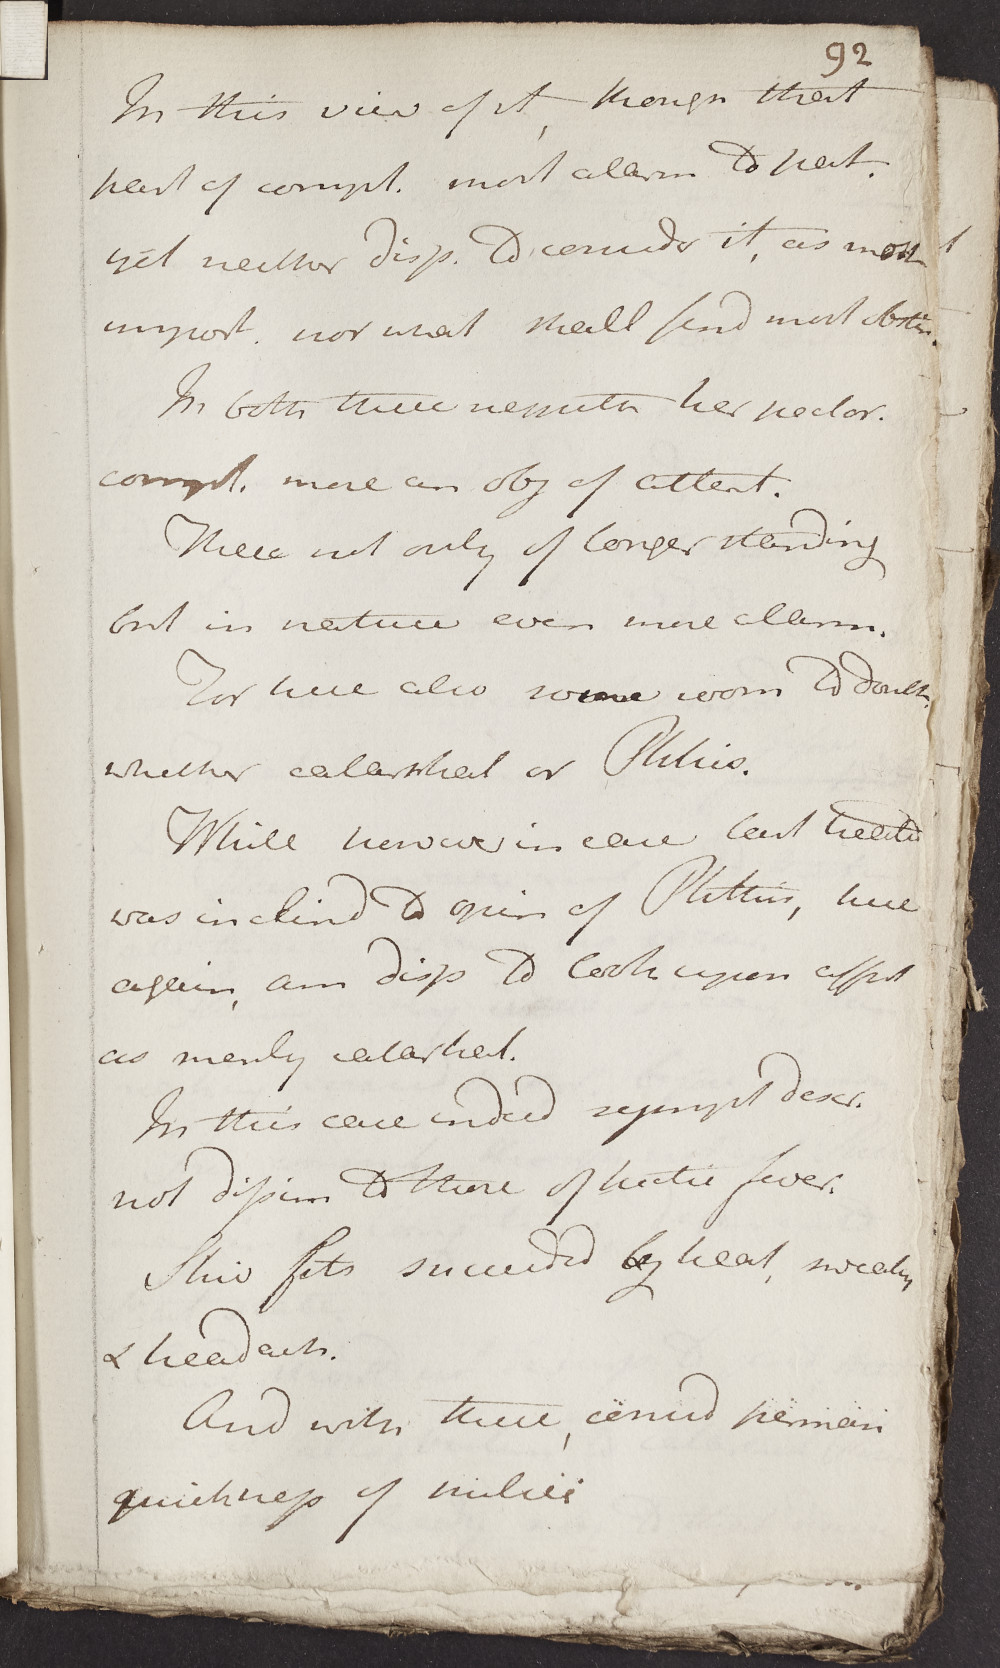 92
In this view of it, though that
part of compt. most alarm to pat.
yet neither disp. to consider it, as most
import. nor what shall find most obstin.
In both these respects her pector.
compt. more an obj of attent.
These not only of longer standing
but in nature even more alarm.
For here also some room to doubt
whether catarrhal or Phthis.
While however in case last treated
was inclind to opin of Phthisis, here
again, am disp to look upon affect
as merely catarrhal.
In this case indeed sympt descr.
not dissim to those of hectic fever.
Shiv fits succeeded by heat, sweating
& headach.
And with these, consid perman
quickness of pulse